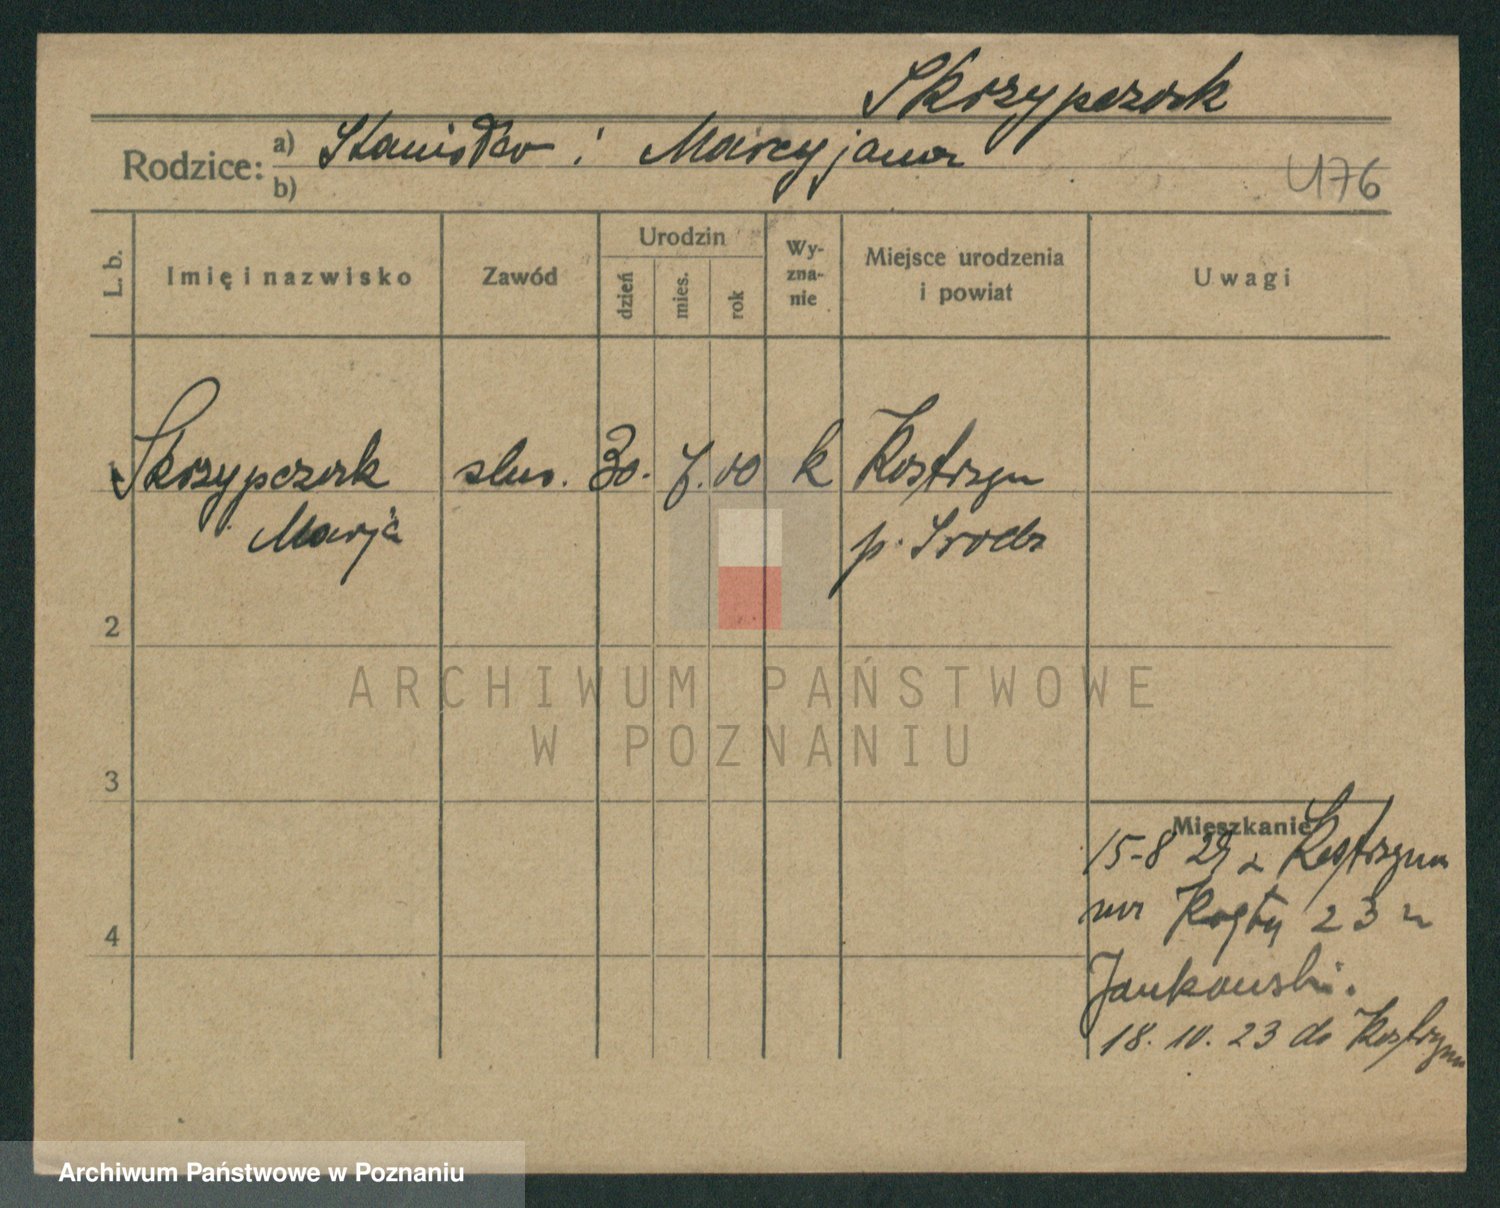 Skrzypczak
Rodzice: a) Stanisław i Marcyjanna
b)
U176
L. b.
Imię i nazwisko
Zawód
Urodzin
dzień
mies.
rok
Wy-
zna-
nie
Miejsce urodzenia
i powiat
Uwagi
Skrzypczak służ. 30. 7. 00 k Kostrzyn
Marja p. Środa
2
3
4
Mieszkanie
15-8 23 z Kostrzyna
na 23 u
Jankowski.
18. 10. 23 do Kostrzyna
ARCHIWUM PAŃSTWOWE
W POZNANIU
Archiwum Państwowe w Poznaniu